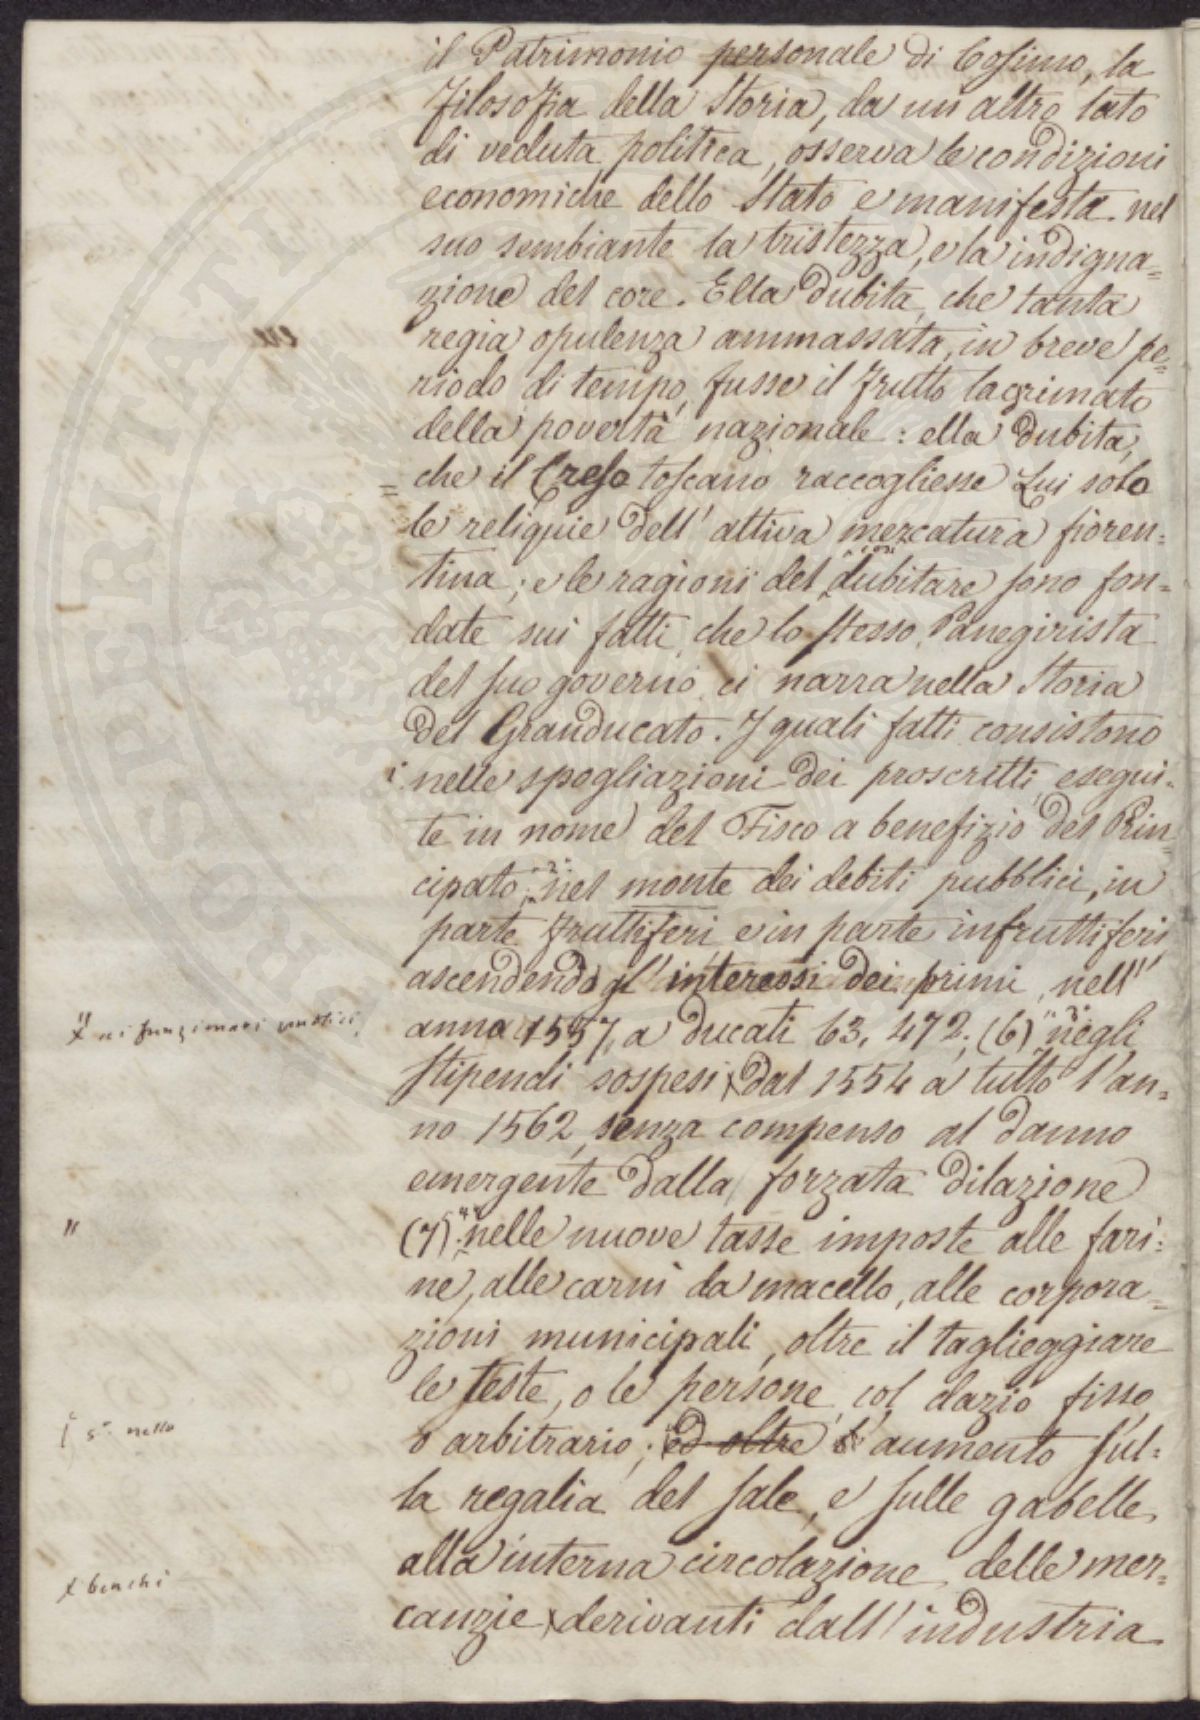 il Patrimonio personale di Cosimo, la
Filosofia della Storia, da un altro lato
di veduta politica, osserva le condizioni
economiche dello Stato e manifesta nel
suo sembiante la tristezza, e la indigna=
zione del core. Ella dubita, che tanta
regia opulenza ammassata, in breve pe=
riodo di tempo, fusse il frutto lagrimato
della povertà nazionale: ella dubita,
= che il Creso toscano raccogliesse Lui solo
le reliquie dell' attiva mercatura fioren=
tina; e le ragioni del dubitare sono fon=
date sui fatti, che lo stesso Panegirista
del suo governo ci narra nella Storia
del Granducato. I quali fatti consistono
nelle spogliazioni dei proscritti, esegui=
te in nome del Fisco a benefizio del Prin
cipato; "2° nel monte dei debiti pubblici, in
parte fruttiferi e in parte infruttiferi,
ascendendo gl' interessi dei primi, nell'
" x ai funzionari pubblici,
anno 1557, a ducati 63, 472; (6) "3° negli
stipendi sospesi x dal 1554 a tutto l'an=
no 1562, senza compenso al danno
emergente dalla forzata dilazione
"
(7) "4° nelle nuove tasse imposte alle fari=
ne, alle carni da macello, alle corpora=
zioni municipali, oltre il taglieggiare
le teste, o le persone, col dazio fisso,
5° nello
o arbitrario; ed oltre l' aumento sul=
la regalia del sale, e sulle gabelle
alla interna circolazione delle mer=
x benchi
canzie x derivanti dall' industria